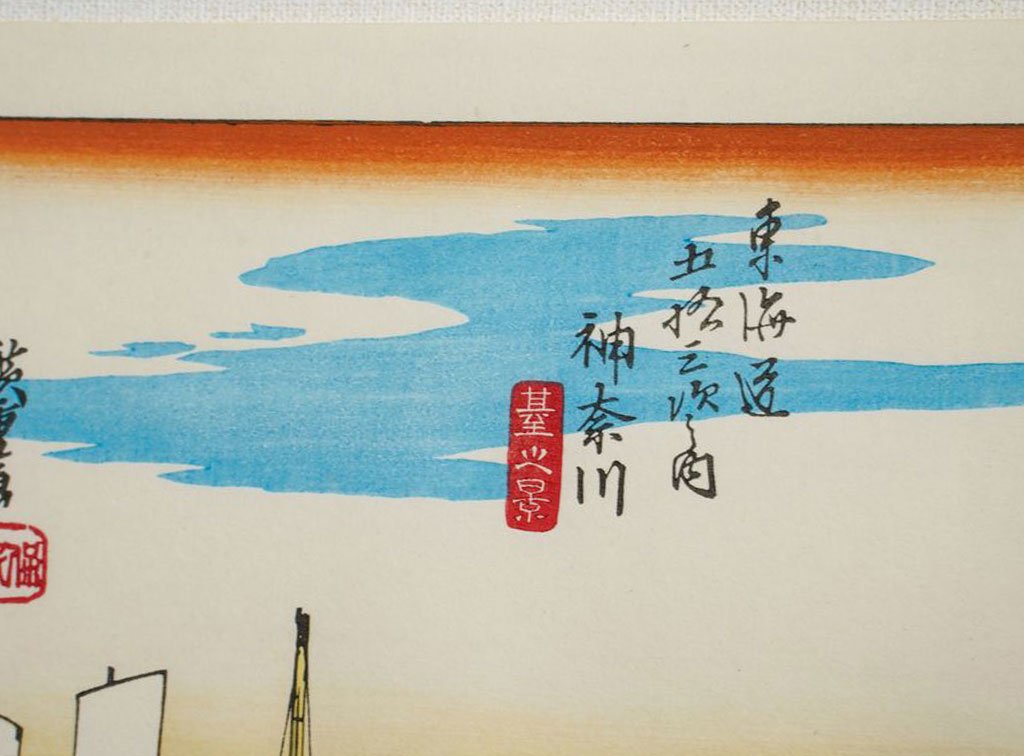 東海道
五拾三次之内
神奈川
臺之景
廣重画